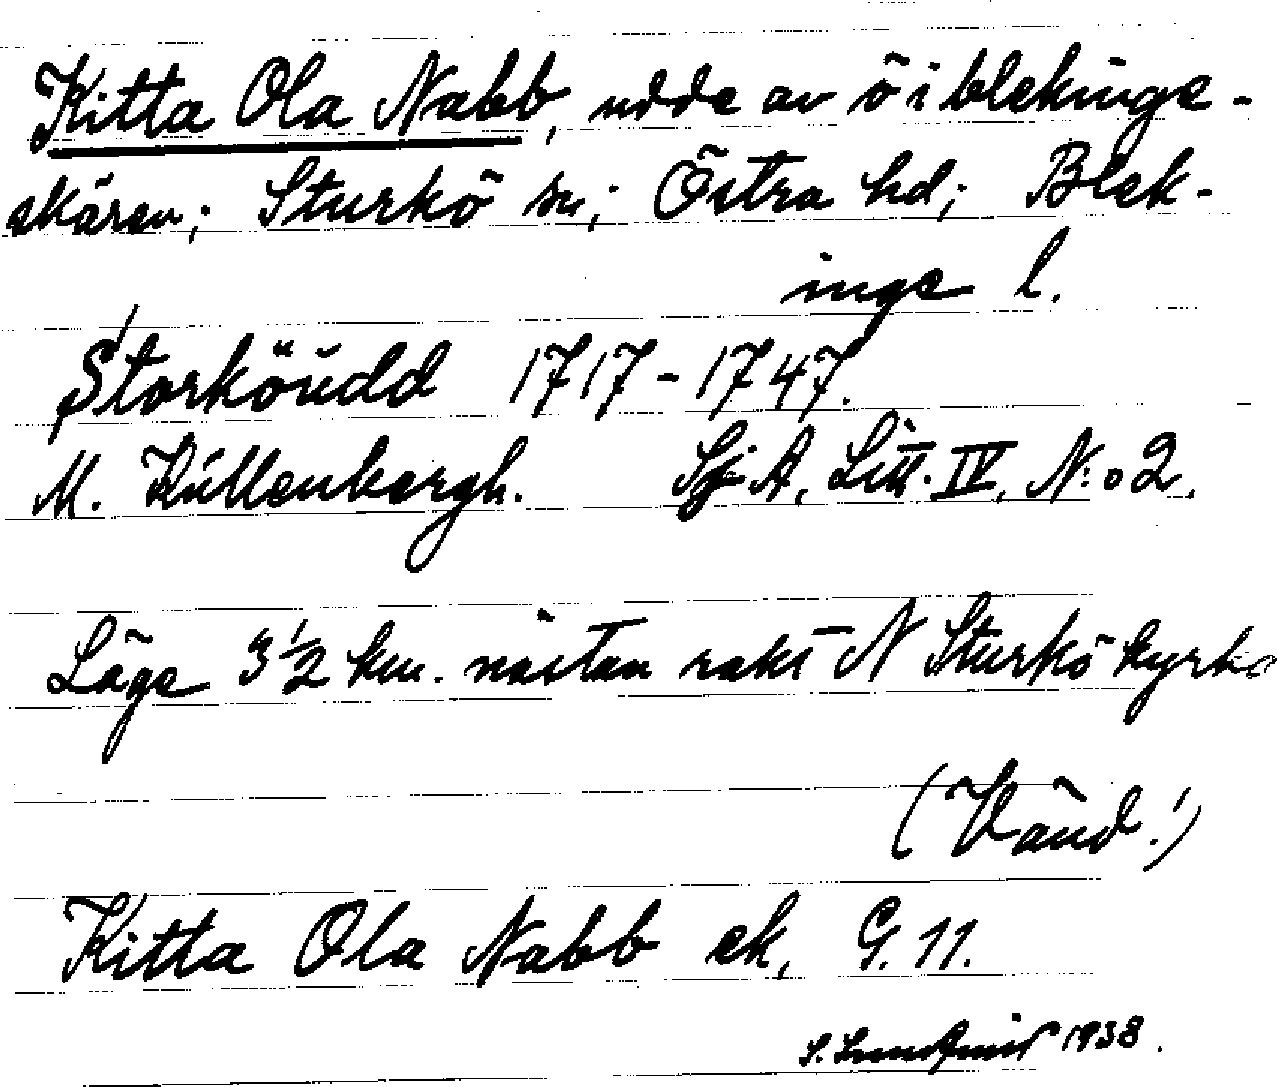 Kitta Ola Nabb, udde av ö i blekinge-
skären; Sturkö sn; Östra hd; Blek-
inge l.
Storköudd 1717-1747.
M. Küllenbergh. Sj A, Litt. IV, N:o 2.
Läge 3 1/2 km. nästan rakt N Sturkö kyrka
(Vänd!)
Kitta Ola Nabb ek, G. 11.
S. Lundqvist 1938.